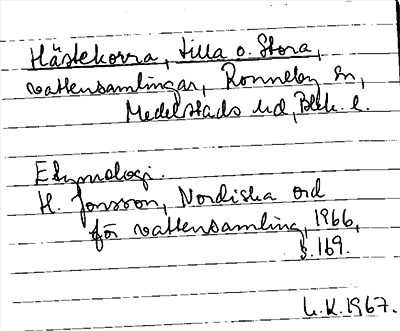 Hästekorra, Lilla o. Stora,
vattensamlingar, Ronneby sn,
Medelstads hd, Blek. l.
Etymologi.
H. Jonsson, Nordiska ord
för vattensamling, 1966,
s. 169.
L.K. 1967.